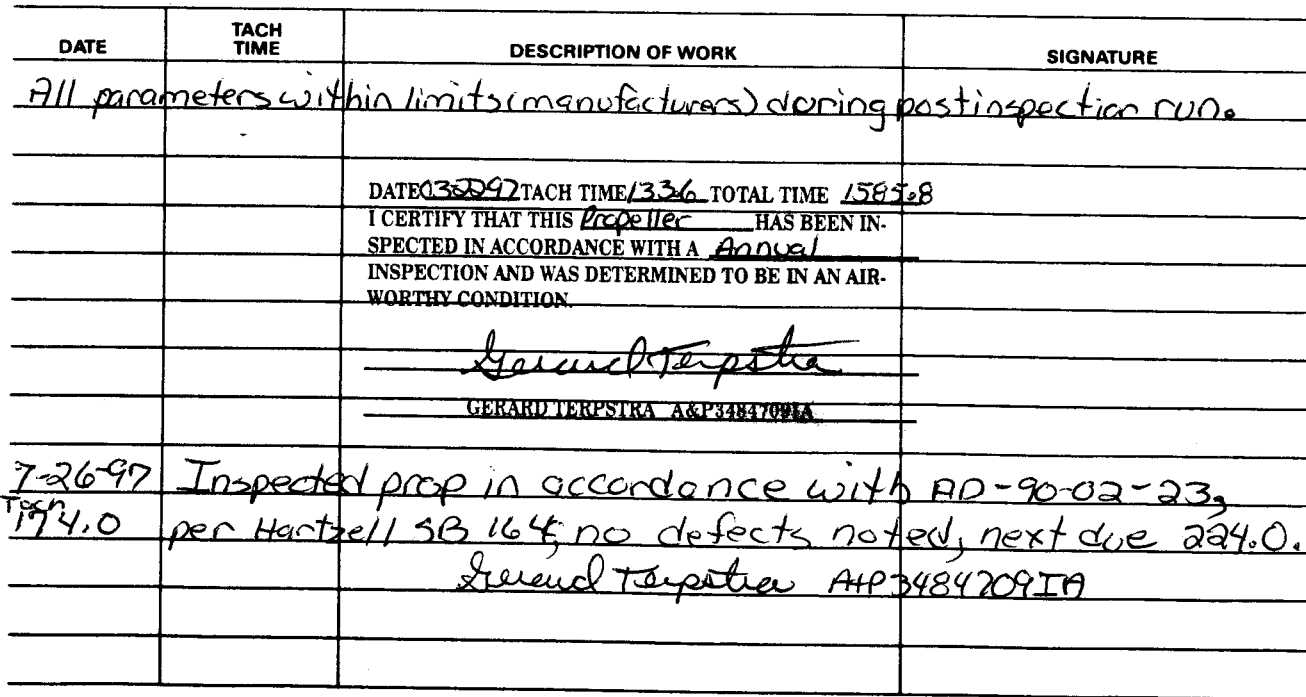 DATE TACH TIME DESCRIPTION OF WORK SIGNATURE
All parameters within limits (manufacturers) during postinspection run.
DATE 032297 TACH TIME 133.6 TOTAL TIME 1585.8
I CERTIFY THAT THIS Propeller HAS BEEN IN-
SPECTED IN ACCORDANCE WITH A Annual
INSPECTION AND WAS DETERMINED TO BE IN AN AIR-
WORTHY CONDITION.
Gerard Terpstra
GERARD TERPSTRA A&P3484709IA
7-26-97 Inspected prop in accordance with AD-90-02-23,
Tach 174.0 per Hartzell SB 164, no defects noted, next due 224.0.
Gerard Terpstra A+P3484709IA